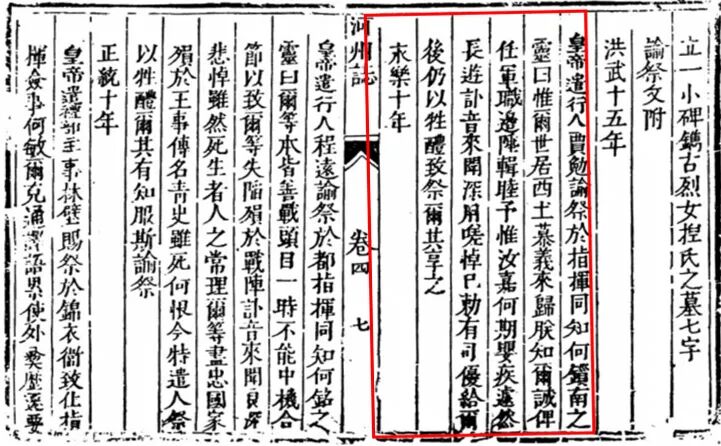 立一小碑鐫古烈女揑氏之墓七字
諭祭文附
洪武十五年
皇帝遣行人賈勉諭祭於指揮同知何鎖南之
靈曰惟爾世居西土慕義來歸朕知爾誠俾
任軍職邊陲輯睦予惟汝嘉何期嬰疾遽然
長逝訃音來聞深用嗟悼已勅有司優給爾
後仍以牲醴致祭爾其享之
永樂十年
河州誌
卷四
七
皇帝遣行人程遠諭祭於都指揮同知何銘之
靈曰爾等本皆善戰頭目一時不能中機合
節以致爾等失陷殞於戰陣訃音來聞良深
悲悼雖然死生者人之常理爾等盡忠國家
殞於王事傳名青史雖死何恨今特遣人祭
以牲醴爾其有知服斯諭祭
正統十年
皇帝遣禮部主事林璧賜祭於錦衣衛致仕指
揮僉事何敏爾克通譯語累使外夷歷